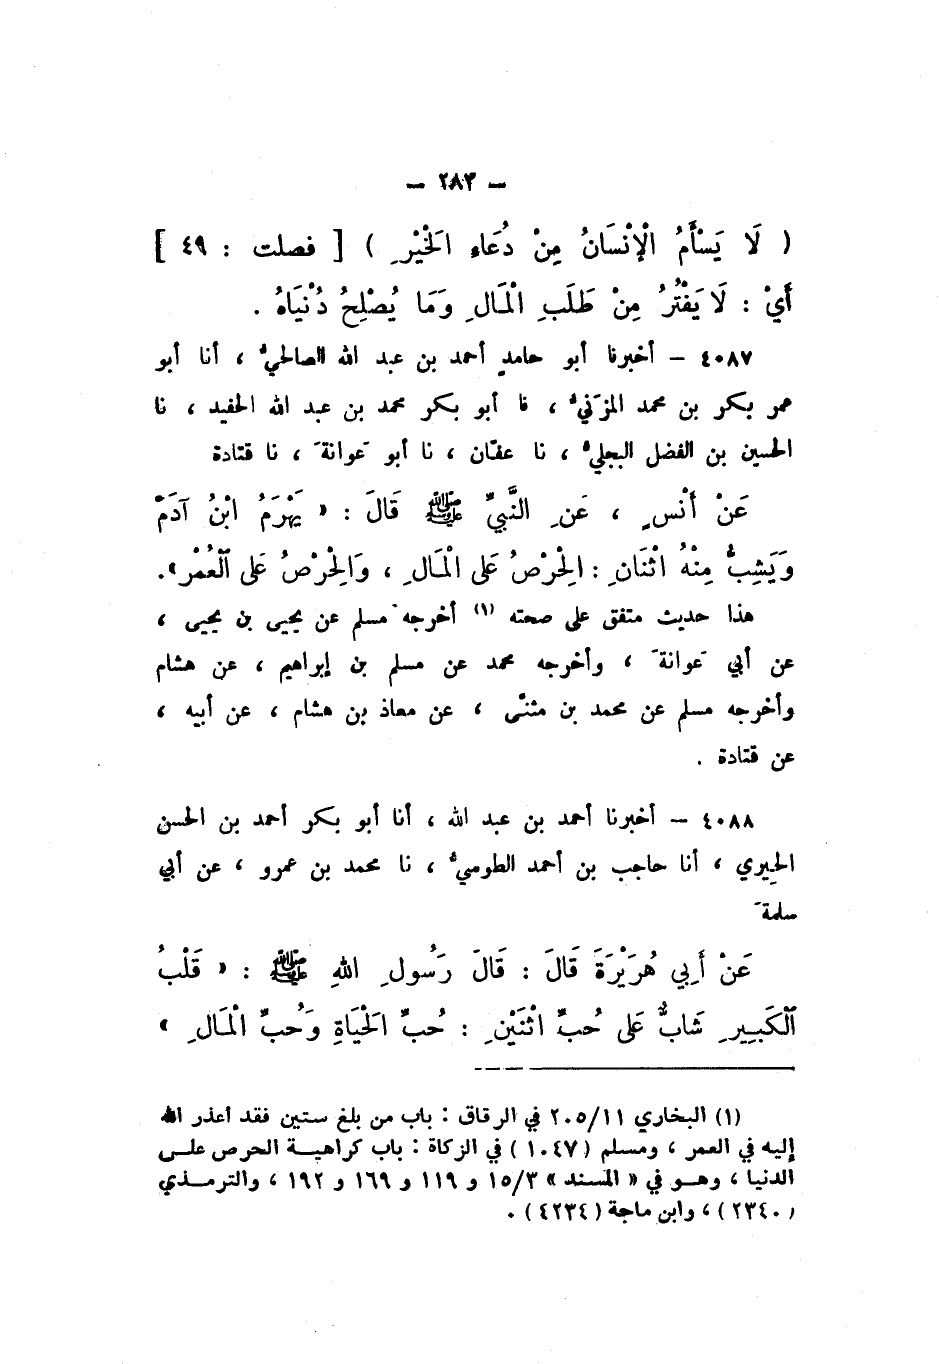 – ٢٨٣ –
( لَا يَسْأَمُ الْإِنْسَانُ مِنْ دُعَاءِ الْخَيْرِ ) [ فصلت : ٤٩ ]
أَيْ : لَا يَفْتُرُ مِنْ طَلَبِ الْمَالِ وَمَا يُصْلِحُ دُنْيَاهُ .
٤٠٨٧ – أخبرنا أبو حامدٍ أحمد بن عبد الله الصالحيُّ ، أنا أبو
عمر بكر بن محمد المزَنيُّ ، نا أبو بكر محمد بن عبد الله الحفيد ، نا
الحسين بن الفضل البجليُّ ، نا عفّان ، نا أبو عَوانةَ ، نا قتادة
عَنْ أَنَسٍ ، عَنِ النَّبِيِّ ﷺ قَالَ : « يَهْرَمُ ابْنُ آدَمَ
وَيَشِبُّ مِنْهُ اثْنَانِ : الْحِرْصُ عَلَى الْمَالِ ، وَالْحِرْصُ عَلَى الْعُمُرِ ».
هذا حديث متفق على صحته (١) أخرجه مسلم عن يحيى بن يحيى ،
عن أبي عَوانةَ ، وأخرجه محمد عن مسلم بن إبراهيم ، عن هشام
وأخرجه مسلم عن محمد بن مثنّى ، عن معاذ بن هشام ، عن أبيه ،
عن قتادة .
٤٠٨٨ – أخبرنا أحمد بن عبد الله ، أنا أبو بكر أحمد بن الحسن
الحِيري ، أنا حاجب بن أحمد الطوسيُّ ، نا محمد بن عمرو ، عن أبي
سلمةَ
عَنْ أَبِي هُرَيْرَةَ قَالَ : قَالَ رَسُولُ اللهِ ﷺ : « قَلْبُ
الْكَبِيرِ شَابٌّ عَلَى حُبِّ اثْنَيْنِ : حُبِّ الْحَيَاةِ وَحُبِّ الْمَالِ »
(١) البخاري ٢٠٥/١١ في الرقاق : باب من بلغ ستين فقد أعذر الله
إليه في العمر ، ومسلم (١٠٤٧) في الزكاة : باب كراهية الحرص على
الدنيا ، وهو في « المسند » ١٥/٣ و ١١٩ و ١٦٩ و ١٩٢ ، والترمذي
(٢٣٤٠) ، وابن ماجة (٤٢٣٤) .